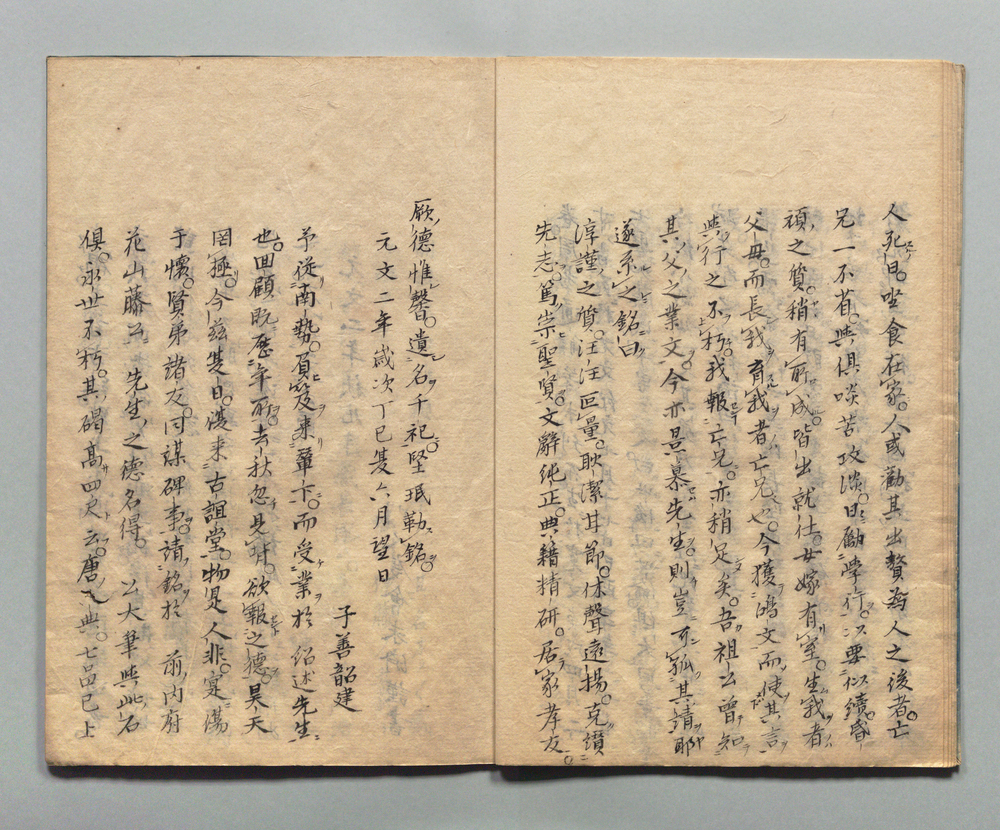 人死曰。坐食在家。人或勸其出贅為人之後者。亡
兄一不荀。與俱啖苦攻淡。日勵學行。以栗似續。昏
頑之質。稍有所成。皆出就仕。女嫁有室。生我者
父母。而長我育我者亡兄也。今獲鴻文而使其言
與行之不朽。我報亡兄。亦稍足矣。吾祖公曾知
其父之業文。今亦景慕先生。則豈可孤其請耶
遂系之銘曰
淳謹之質。汪汪叵量。耿潔其節。休聲遠揚。克纉
先志。篤崇聖賢。文辭純正。典籍精研。居家孝友。
厥德惟馨。遺名千祀。堅珉勒銘。
元文二年歲次丁巳夏六月望日
子善韶建
予從南勢。負笈来輦下。而受業於紹述先生
也。回顧既歴年所。去秋忽見背。欲報之德。昊天
罔極。今茲夏日。復来古誼堂。物是人非。寔蕩
于懷。賢弟諸友。同謀碑事。請銘於 前内府
花山藤公。先生之德名得。 公大筆與此石
俱。永世不朽。其碣高四尺云。唐之典。七品已上